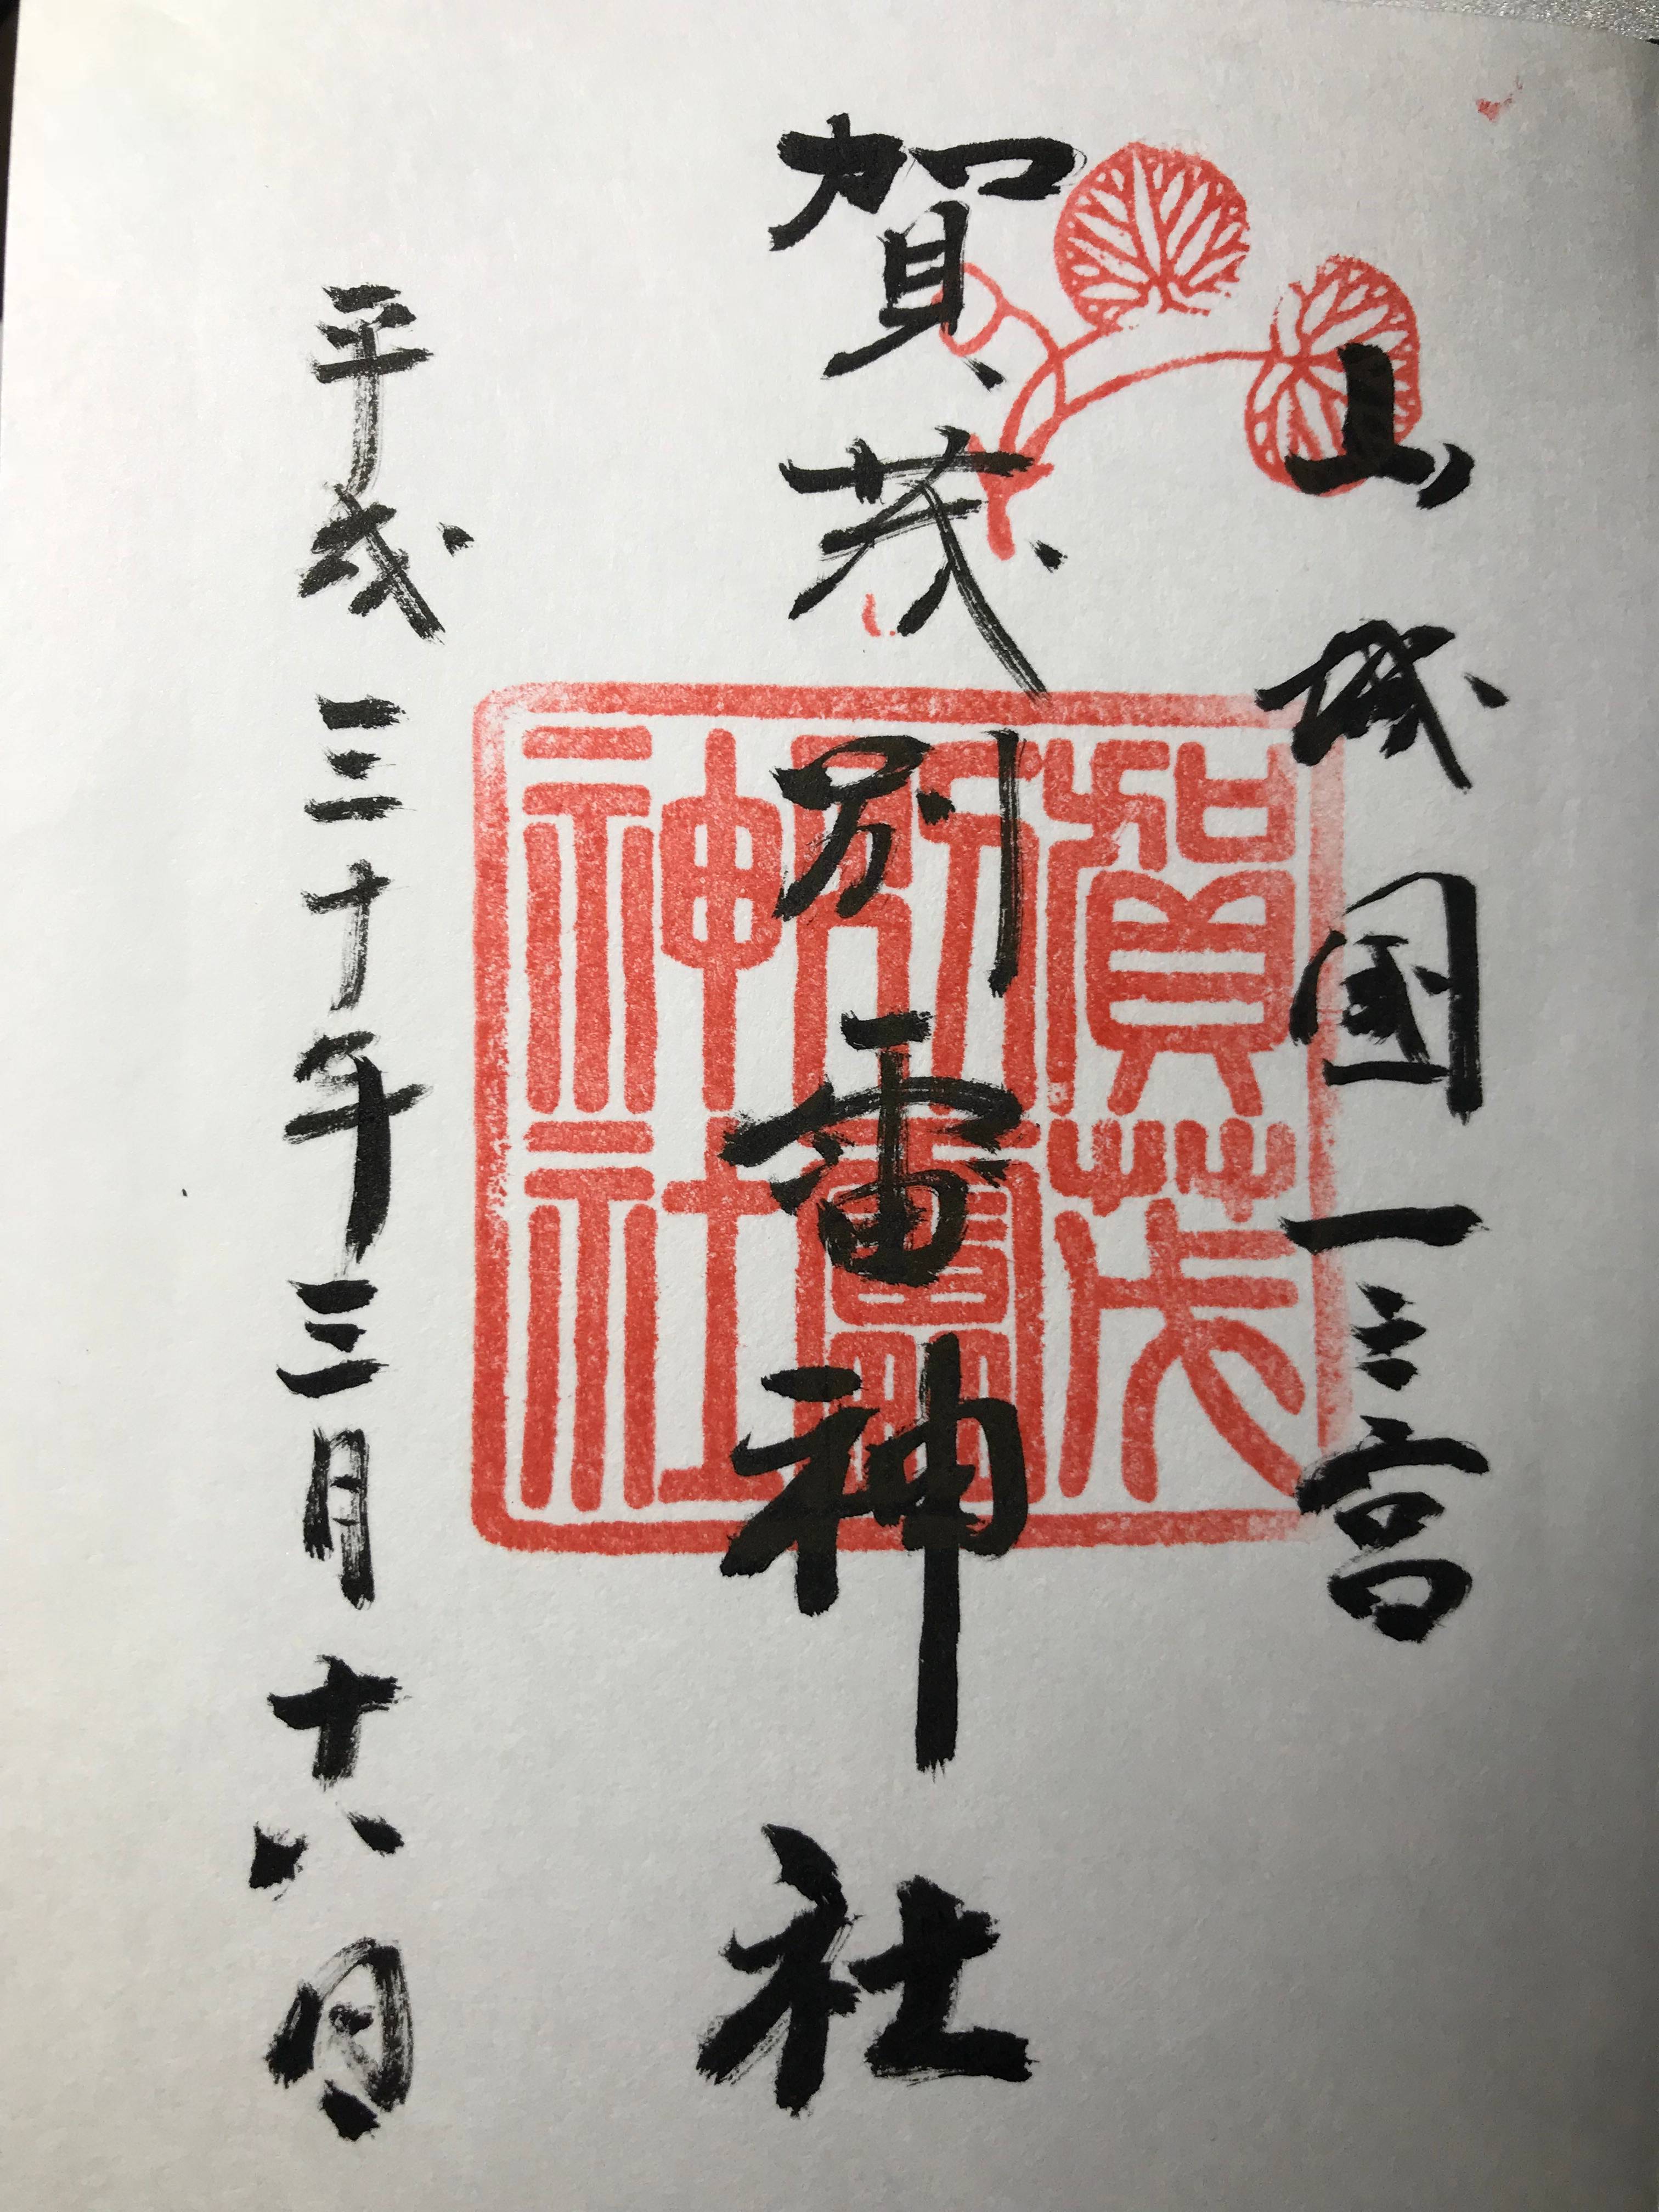 山城国一之宮
賀茂別雷神社
賀茂別雷神社
平成三十年三月十八日